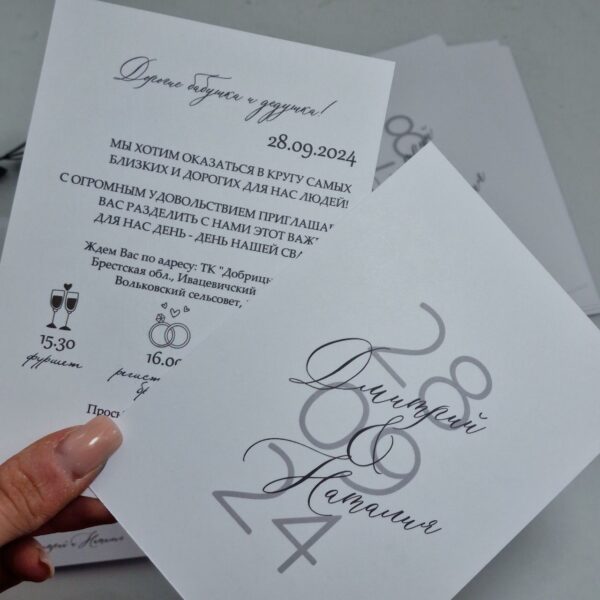 Дорогие бабушка и дедушка!
28.09.2024
МЫ ХОТИМ ОКАЗАТЬСЯ В КРУГУ САМЫХ
БЛИЗКИХ И ДОРОГИХ ДЛЯ НАС ЛЮДЕЙ!
С ОГРОМНЫМ УДОВОЛЬСТВИЕМ ПРИГЛАША
ВАС РАЗДЕЛИТЬ С НАМИ ЭТОТ ВАЖ
ДЛЯ НАС ДЕНЬ - ДЕНЬ НАШЕЙ СВА
Ждем Вас по адресу: ТК "Добриц
Брестская обл., Ивацевичский
Вольковский сельсовет,
15.30
фуршет
16.00
регист
бр
Прос
28
09
24
Дмитрий
&
Наталия